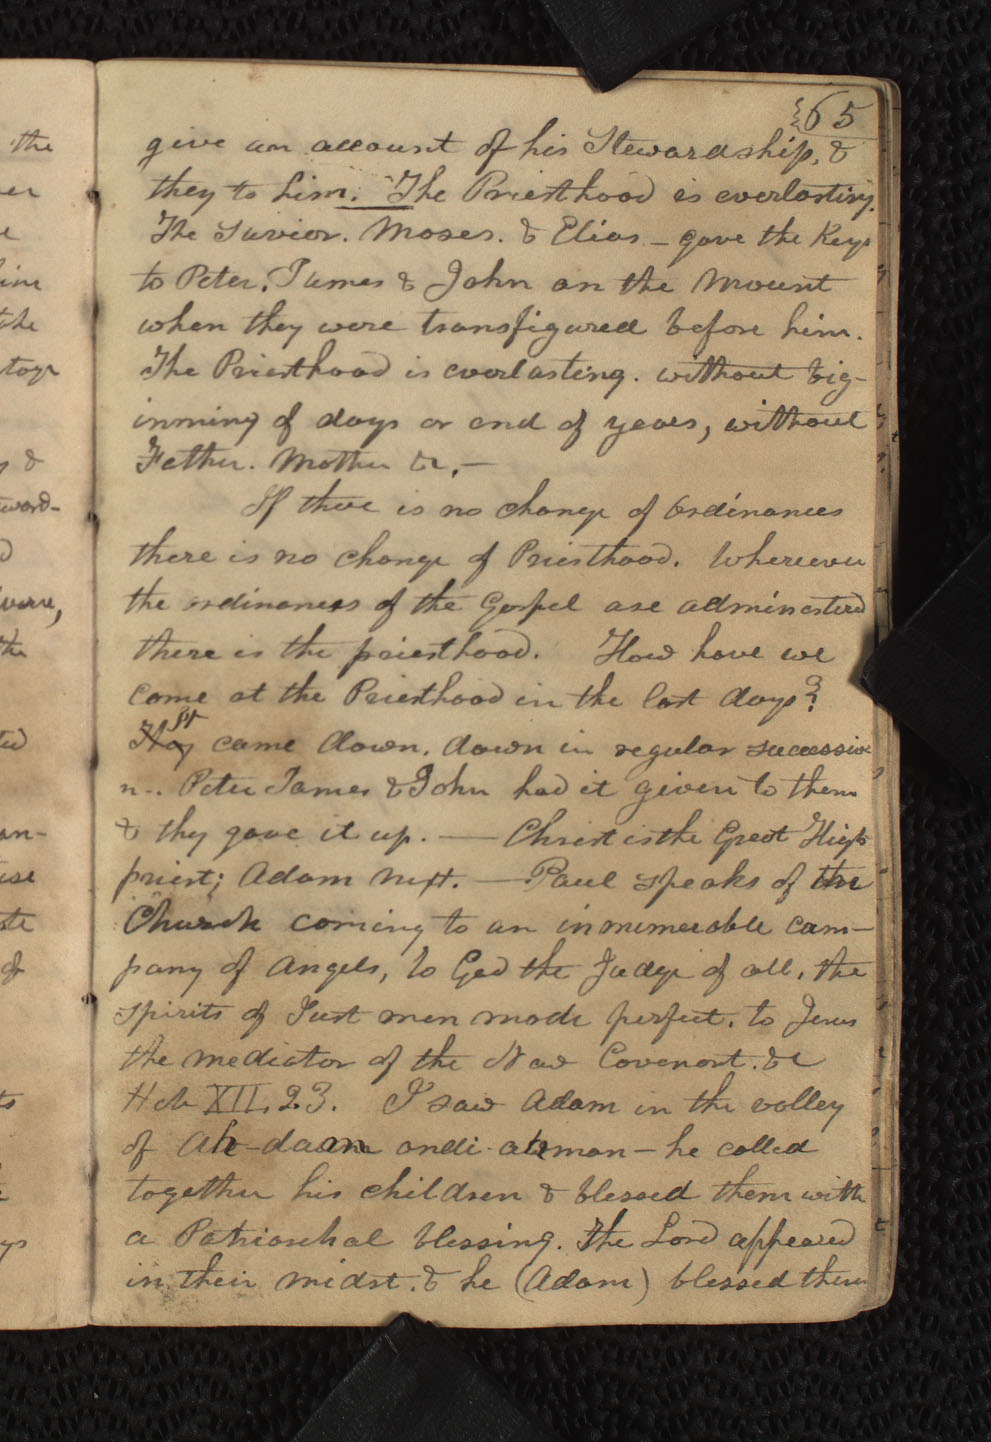 65
give an account of his Stewardship, &
they to him. The Priesthood is everlasting.
The Savior. Moses. & Elias – gave the Keys
to Peter, James & John on the Mount
when they were transfigured before him.
The Priesthood is everlasting. without big-
inning of days or end of years, without
Father. Mother &c, –
If there is no change of ordinances
there is no change of Priesthood. Wherever
the ordinances of the Gospel are administerd
there is the priesthood. How have we
come at the Priesthood in the last days?
It came down, down in regular successio
n-. Peter James & John had it given to them
& thy gave it up. — Christ is the Great High
priest; Adam next. — Paul speaks of the
Church coming to an innumerable com-
pany of Angels, to God the Judge of all, the
spirits of Just men made perfect. to Jesus
the mediator of the New Covenant. &c
Heb XII. 23. I saw Adam in the valley
of Ah-dam ondi-ahman – he called
together his children & blessed them with
a Patriarchal blessing. The Lord appeared
in their midst. & he (Adam) blessed them
the
er
him
the
&
ward-
the
an-
of